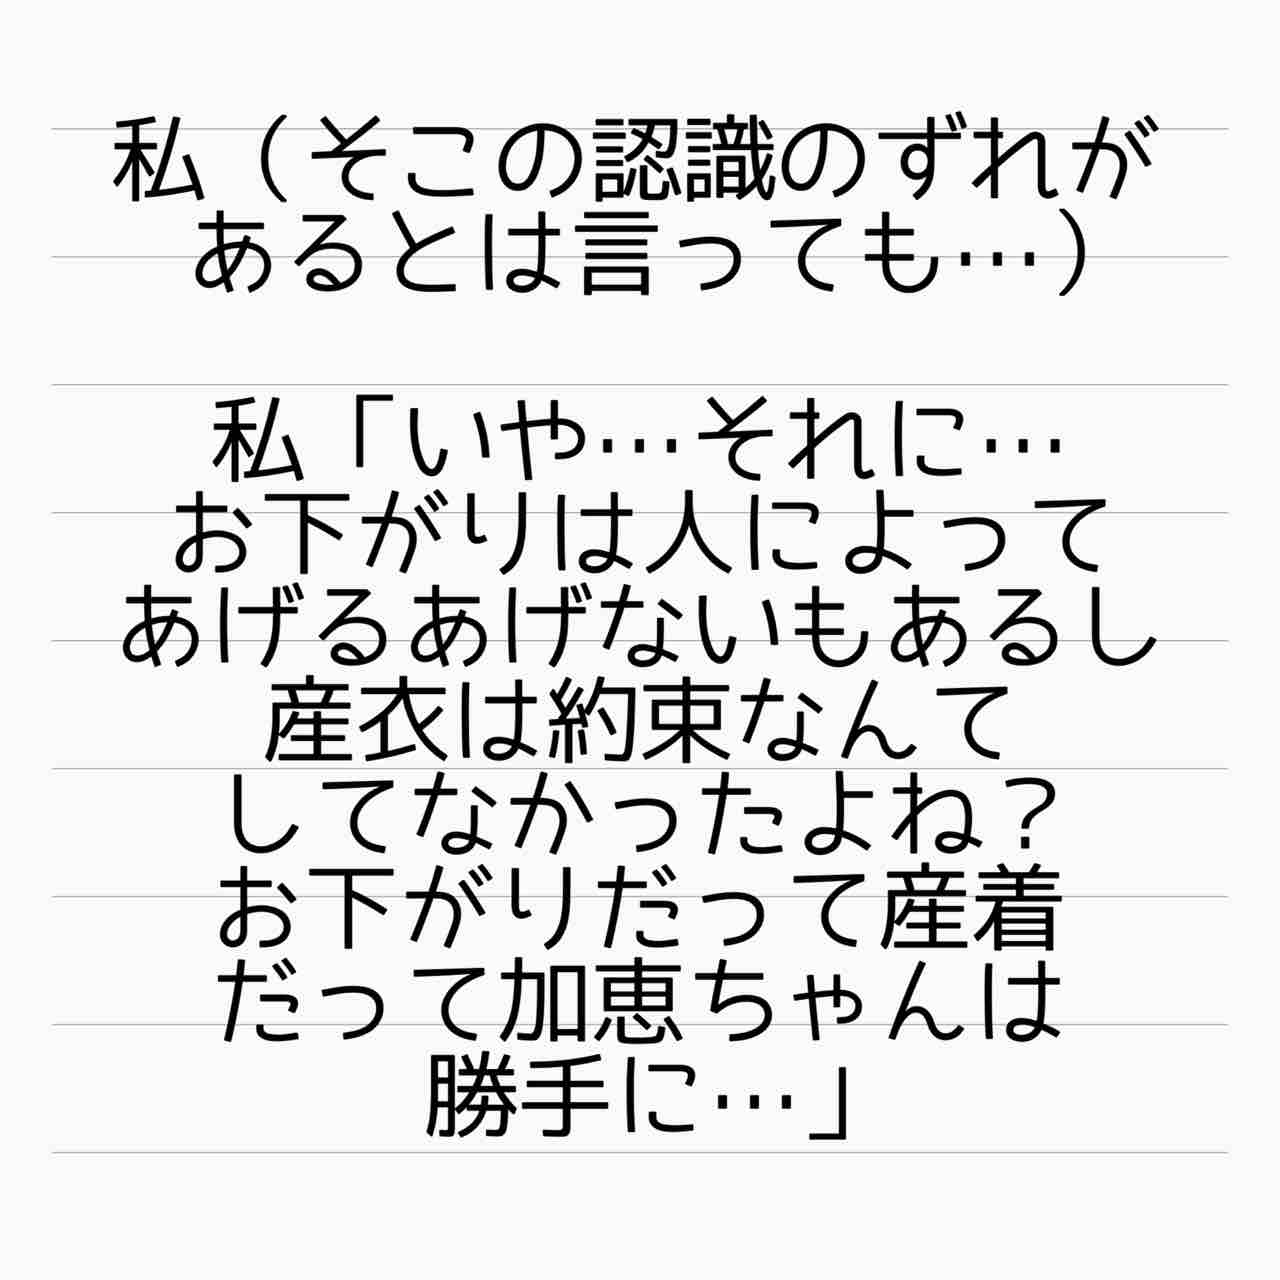 私（そこの認識のずれが
あるとは言っても…）
私「いや…それに…
お下がりは人によって
あげるあげないもあるし
産衣は約束なんて
してなかったよね？
お下がりだって産着
だって加恵ちゃんは
勝手に…」